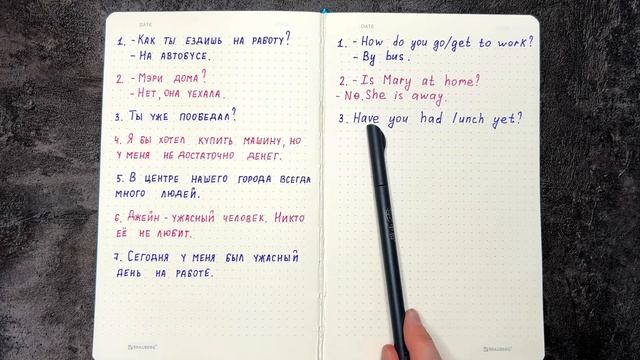 DATE
1. - Как ты ездишь на работу?
- На автобусе.
2. - Мэри дома?
- Нет, она уехала.
3. Ты уже пообедал?
4. Я бы хотел купить машину, но
у меня не достаточно денег.
5. В центре нашего города всегда
много людей.
6. Джейн - ужасный человек. Никто
её не любит.
7. Сегодня у меня был ужасный
день на работе.
BRAUBERG
DATE
1. - How do you go/get to work?
- By bus.
2. - Is Mary at home?
- No. She is away.
3. Have you had lunch yet?
BRAUBERG